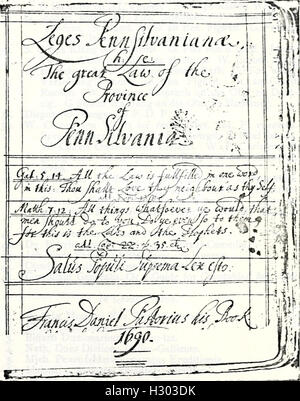 Leges PennSilvanianæ
h. e.
The great Law of the
Province
of
PennSilvania
Gal. 5, 14. All the Law is fullfill'd in one word
in this: Thou shalt Love thy neighbour as thy Self.
Matth. 7.12. All things whatsoever ye would that
men should do to you, do ye even so to them,
for this is the Law and the Prophets.
Salus Populi Suprema Lex esto.
Francis Daniel Pastorius his Book
1690.
alamy
H303DK